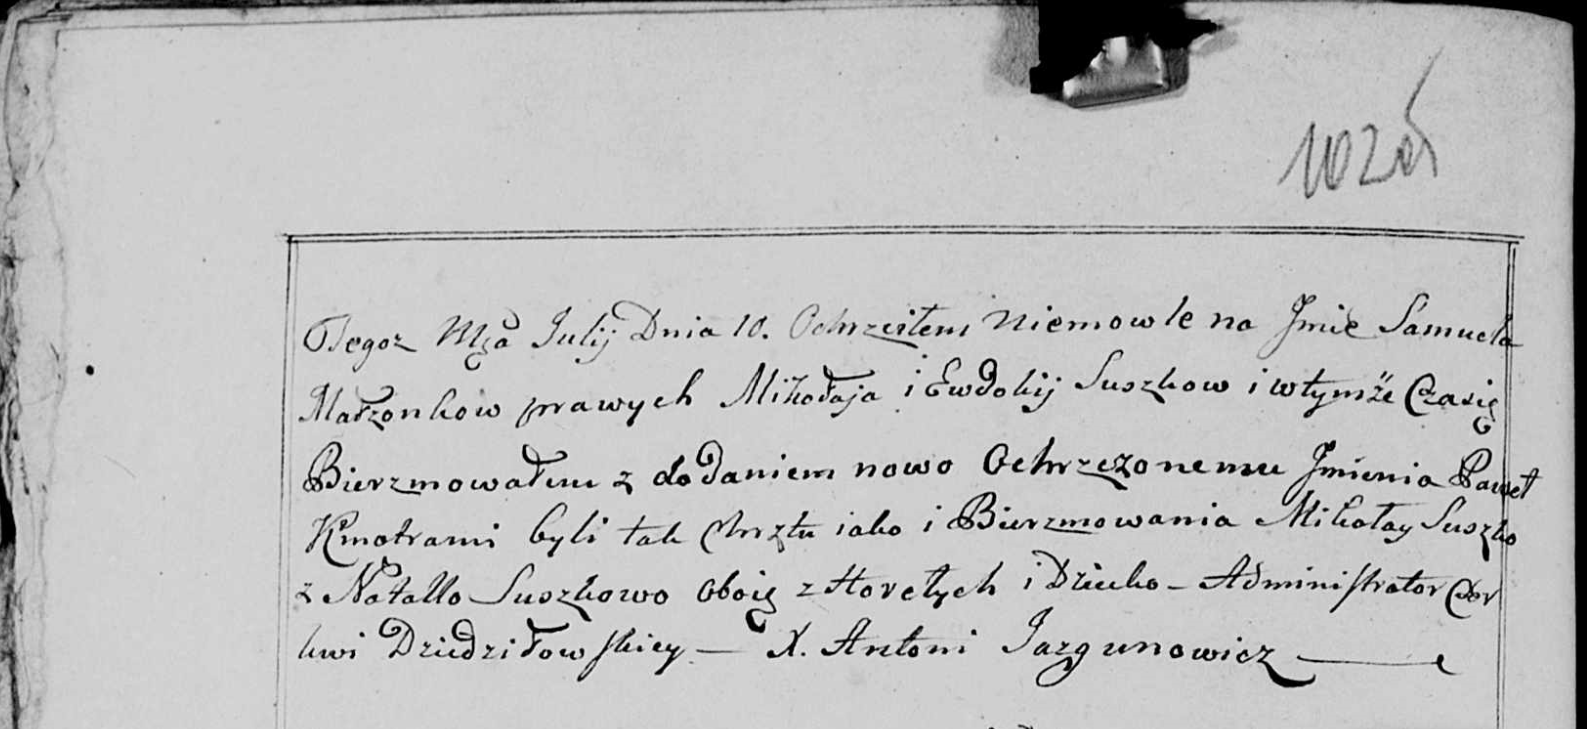 102об
Tegoz Mca Julij Dnia 10. Ochrzciłem Niemowle na Jmie Samuela
Małzonkow prawych Mikołaja i Ewdokij Suszkow i wtymże Czasię
Bierzmowałem z dodaniem nowo Ochrzczonemu Jmienia Paweł
Kmotrami byli tak Chrztu iako i Bierzmowania Mikołay Suszko
z Natallo Suszkowo oboię z Horełych i Dziecko – Administrator Cer
kwi Dziedziłowskiey — X. Antoni Jazgunowicz —